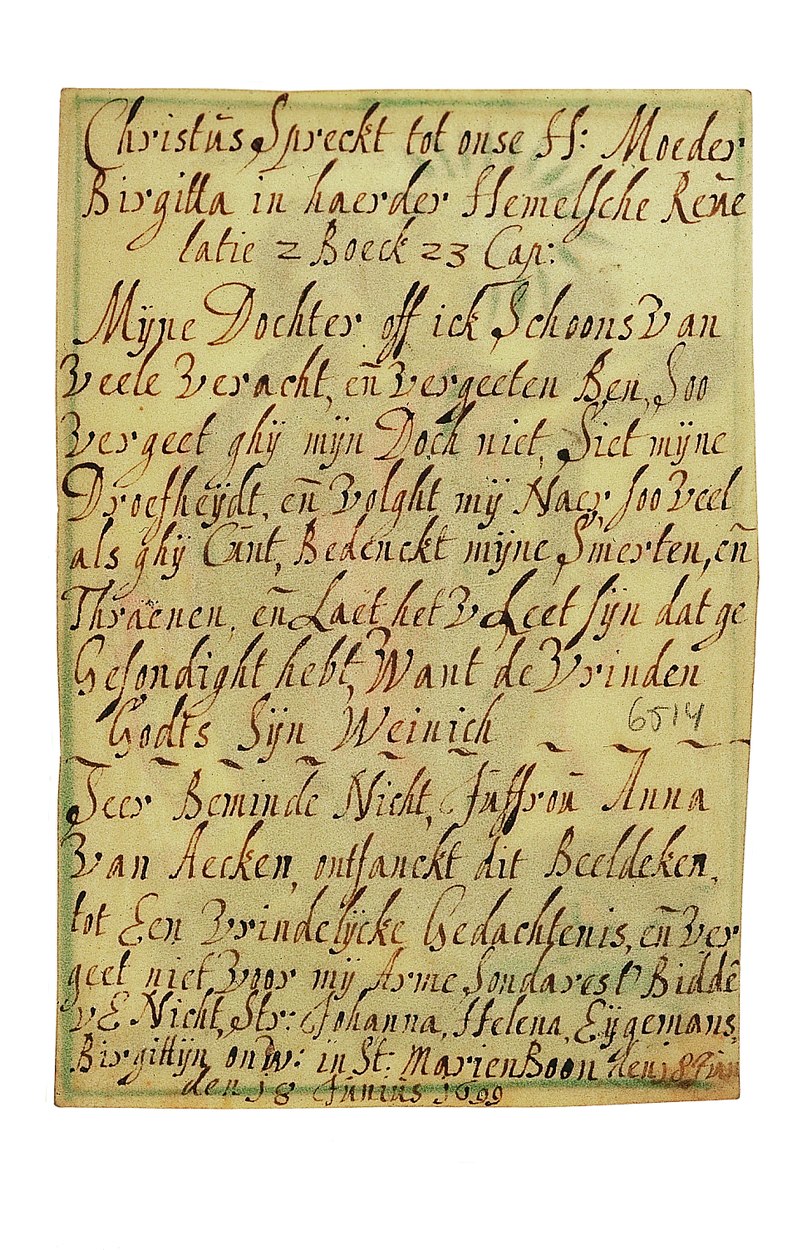 Christus Spreckt tot onse H: Moeder
Birgitta in haerder Hemelsche Reūe
latie 2 Boeck 23 Cap:
Mÿne Dochter off ick Schoons Van
Veele Veracht, eñ Vergeeten Ben, Soo
Vergeet ghÿ mÿn Doch niet, Siet mÿne
Droefheÿdt, eñ Volght mÿ Naer, soo Veel
als ghÿ Cūnt, Bedenckt mÿne Smerten, eñ
Thraenen, eñ Laet het V Leet sÿn dat ge
Gesondight hebt, Want de Vrinden
Godts Sÿn Weinich
6514
Seer Beminde Nicht, Jūffroū Anna
Van Aecken, ontfanckt dit Beeldeken,
tot Een Vrindelÿcke Gedachtenis, eñ Ver
geet niet Voor mÿ Arme Sondarest Biddē
vE Nicht, Str: Johanna, Helena, Eÿgemans,
Birgittÿn onw: in St: MarienBoon den 18 Jun
den 18 Junius 1699